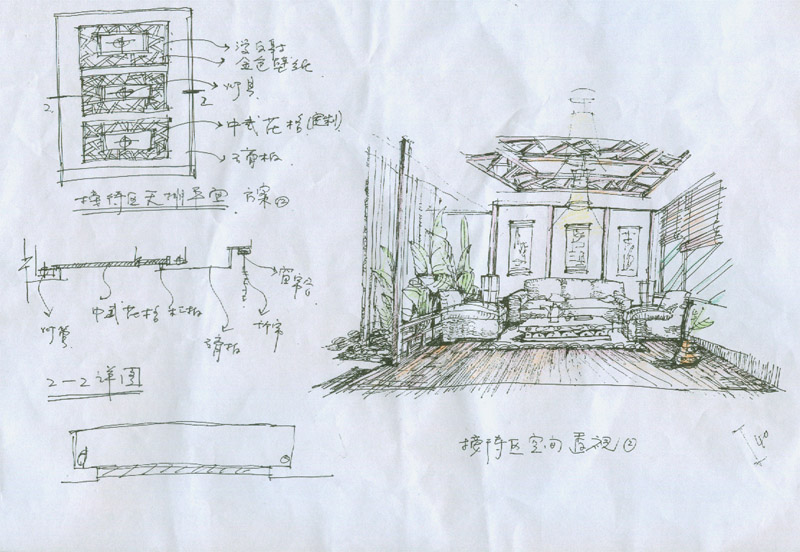 漫反射
金色壁纸
灯具
2
2
中式花格(定制)
石膏板
接待区天棚平面 方案②
窗帘合
中式花格
灯管
木板
2-2详图
接待区空间透视②